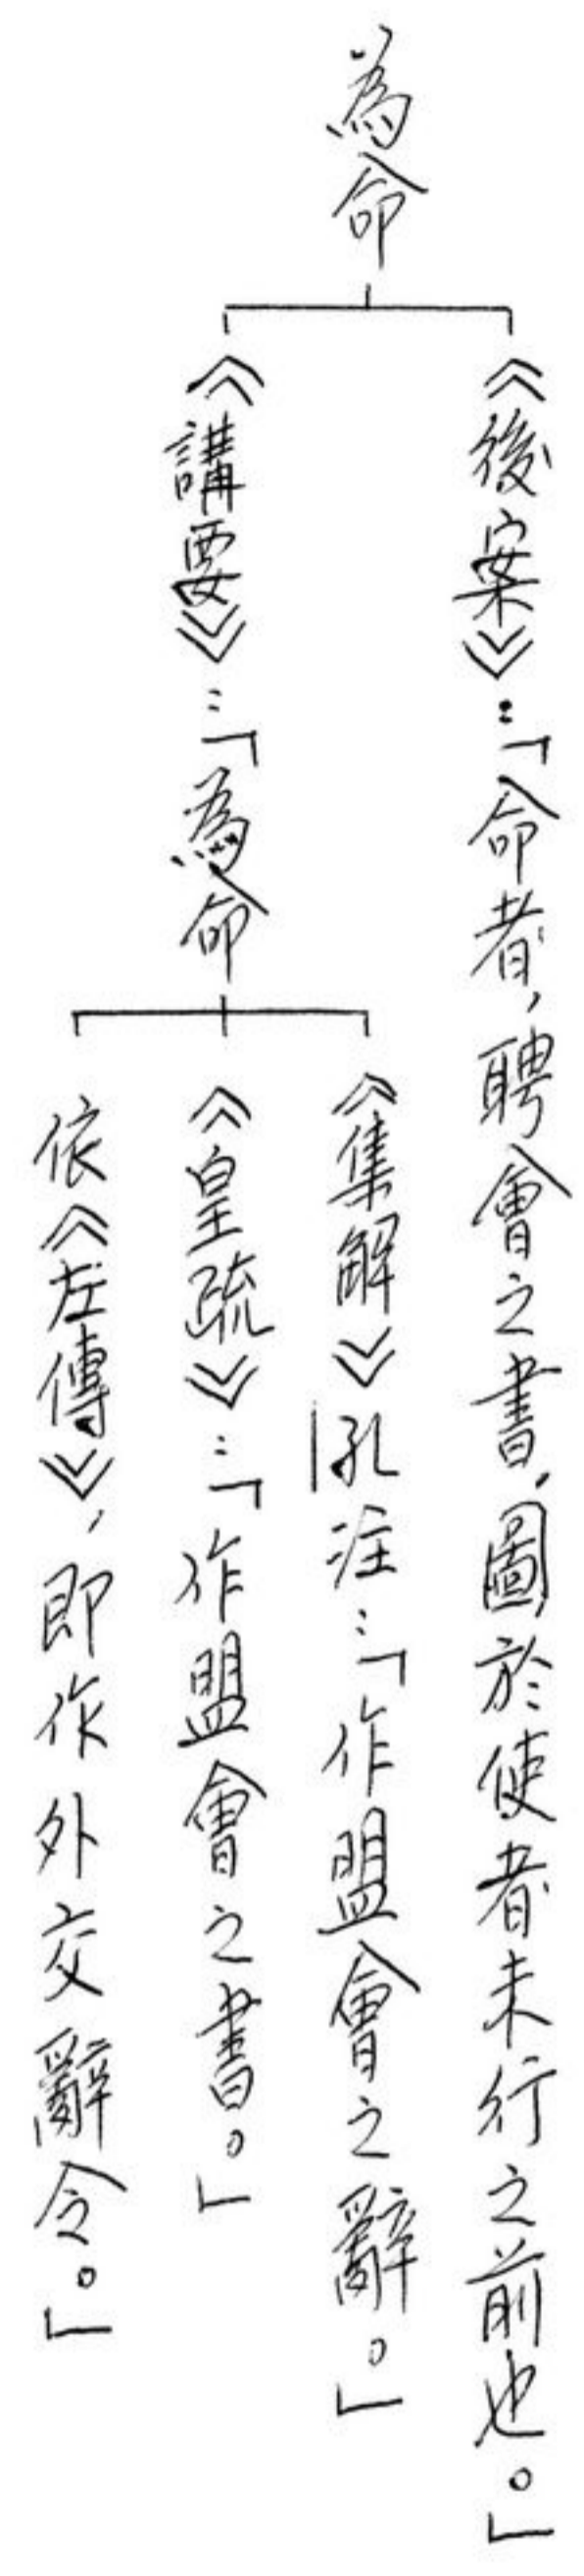 為命
《後案》：「命者，聘會之書，圖於使者未行之前也。」
《講要》：「為命
《集解》孔注：「作盟會之辭。」
《皇疏》：「作盟會之書。」
依《左傳》，即作外交辭令。」